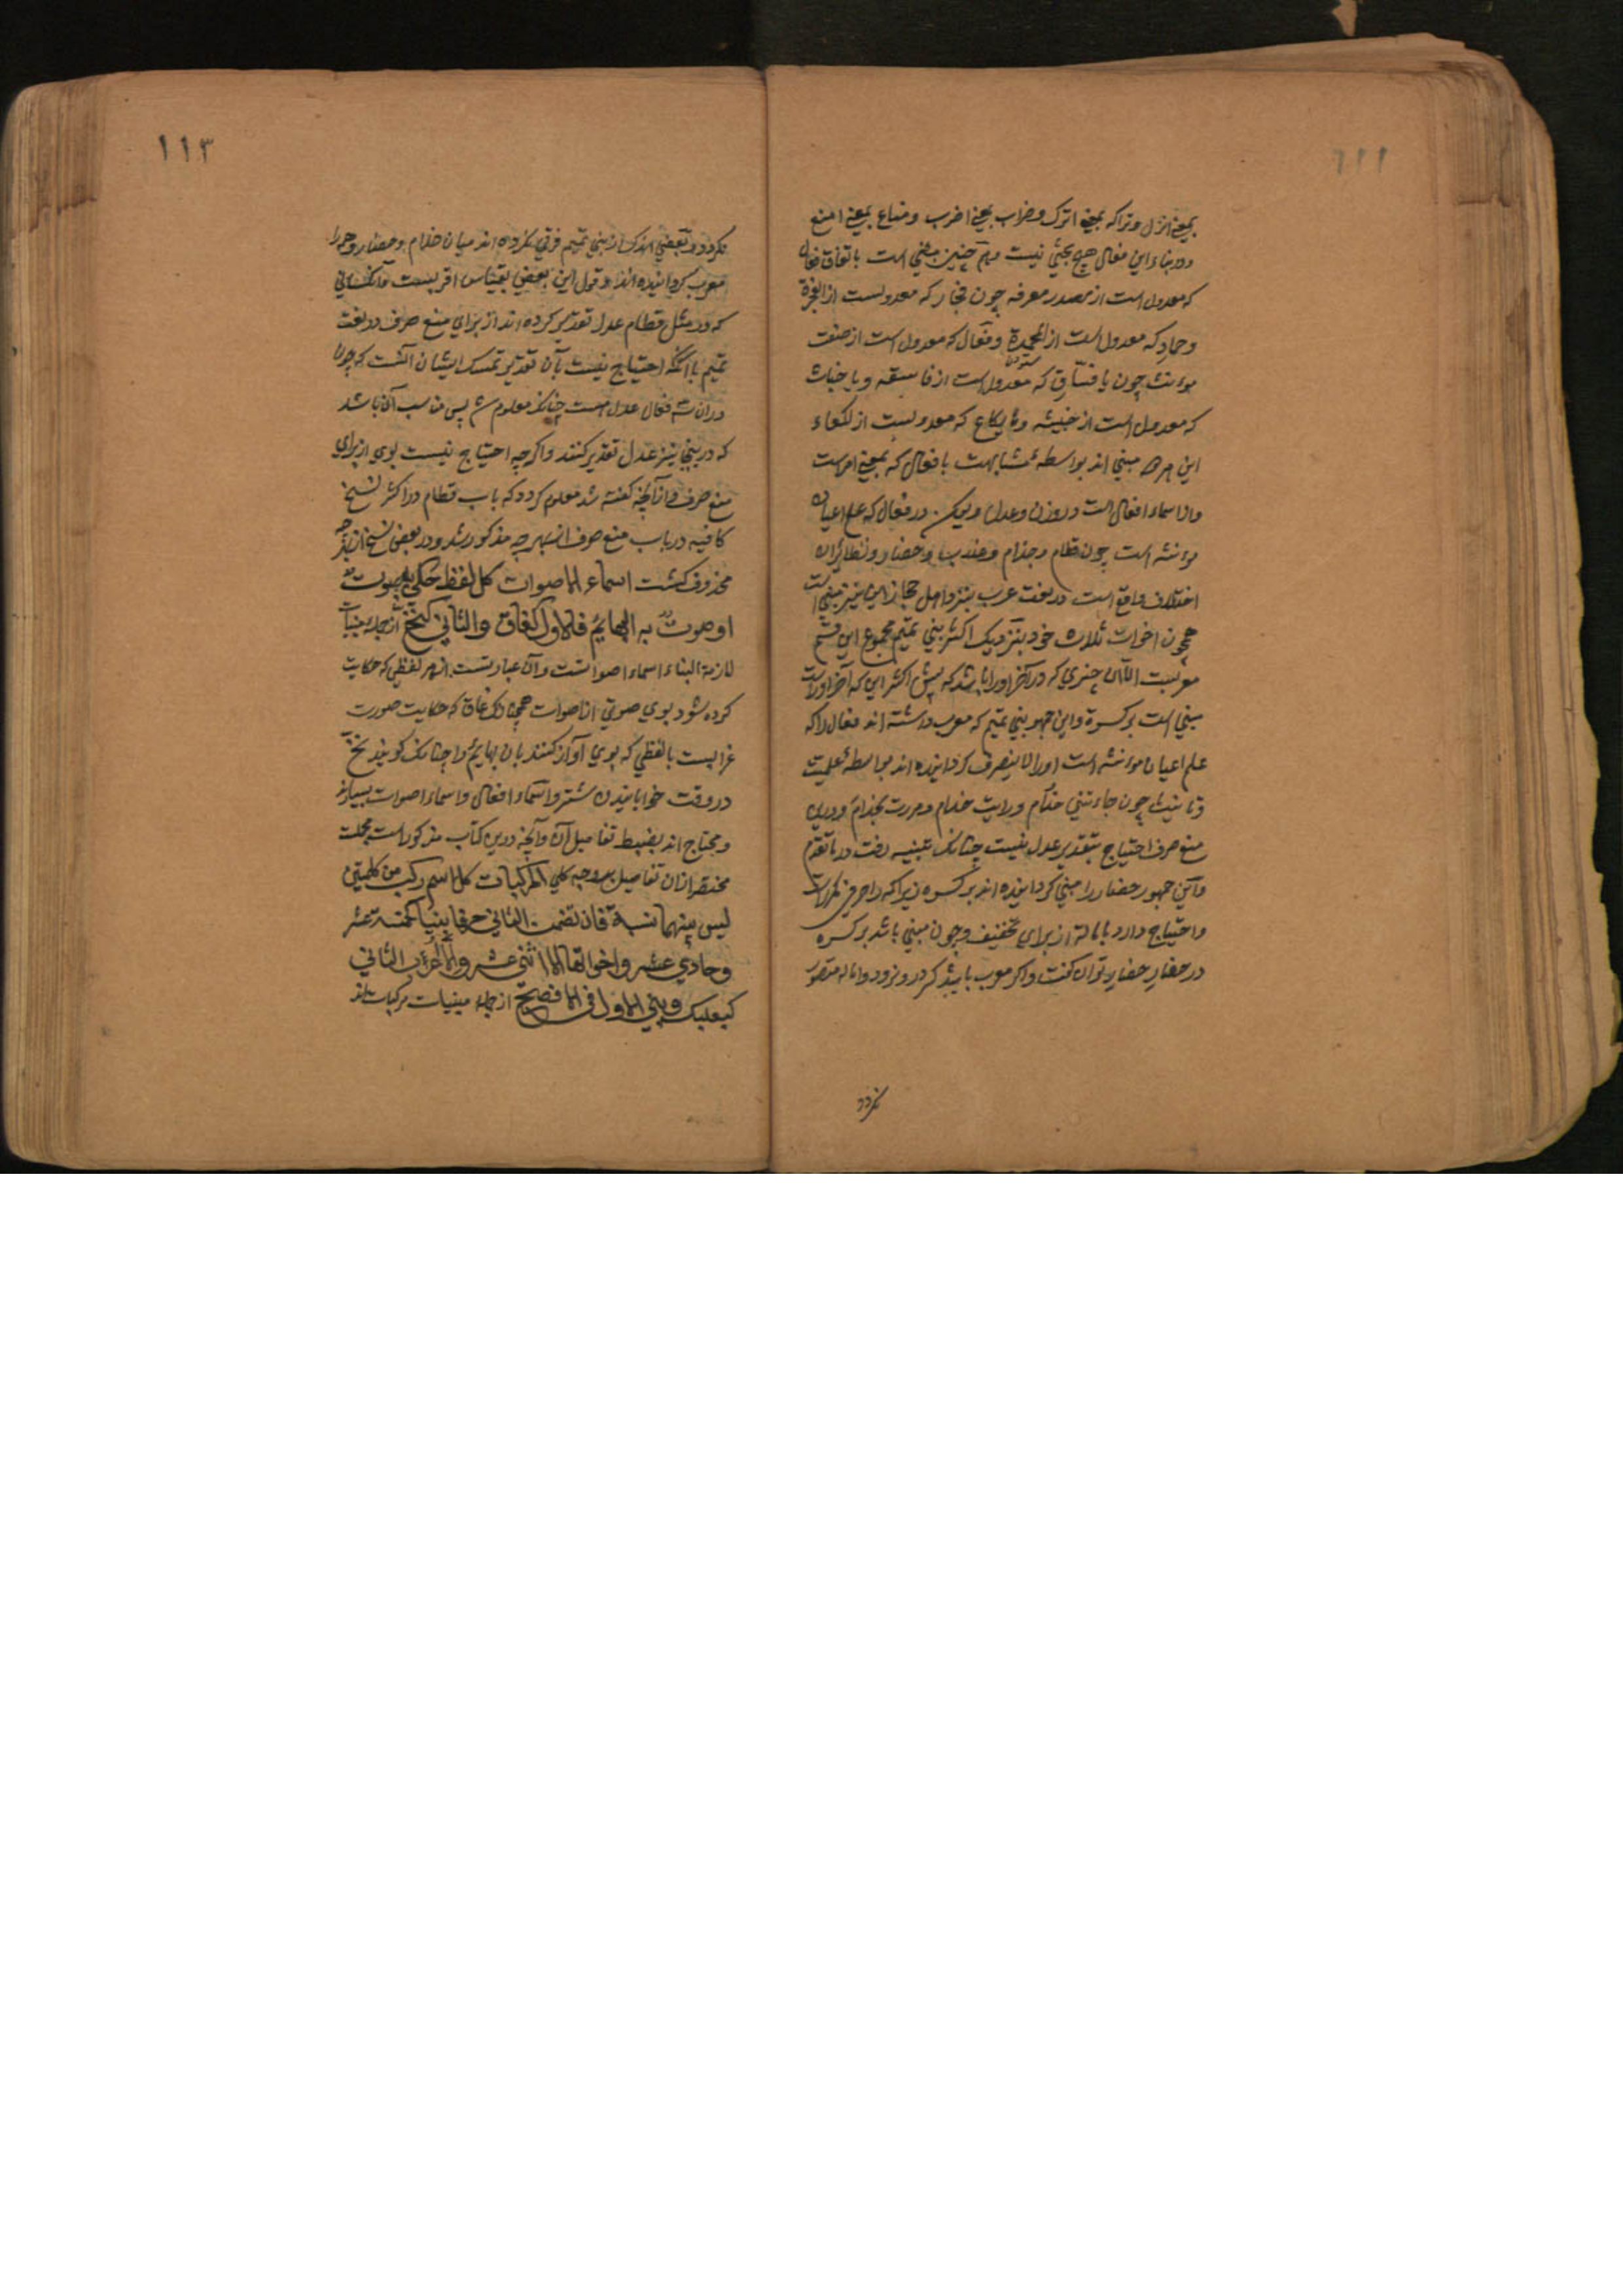 بمعنی انزل وتراک بمعنی اترک وضراب بمعنی اضرب ومناع بمعنی امنع
ودر بناء این فعال هیچ بحثی نیست وهم چنین مبنی است باتفاق فعال
که معدول است از مصدر معرفه چون فجار که معدولست از الفجرة
وحماد که معدول است از المحمدة وفعال که معدول است از صفت
مونث چون یا فساق که معدول است از فاسقه ویا خباث
که معدول است از خبیثه ویا لکاع که معدولست از لکعاء
این هر مبنی اند بواسطه مشابهت با فعال که بمعنی امرست
واز اسماء افعال است در وزن وعدل ولیکن در فعال که علم اعیان
مونثه است چون قطام وحذام وحضار ونظائر ان
اختلاف واقع است در لغت عرب نزد اهل حجاز این نیز مبنی است
همچون اخوات ثلاث خود بنزدیک اکثر بنی تمیم مجموع این قسم
معربست الا ان چیزی که در آخر او را باشد که پیش اکثر این که آخر او راست
مبنی است بر کسره واین جمهور بنی تمیم که معرب داشته اند فعال را که
علم اعیان مونثه است او را لا ینصرف گردانیده اند بواسطه علمیت
وتانیث چون جاءتنی حذام ورایت حذام ومررت بحذام ودرین
منع صرف احتیاج بتقدیر عدل نیست چنانک تنبیه رفت در ما تقدم
واین جمهور حضار را مبنی گردانیده اند بر کسره زیرا که را حرفی مکررست
واحتیاج دارد بامالت از برای تخفیف وچون مبنی باشد بر کسره
در حضار حضار توان گفت واگر معرب باشد کسر در ونرود واماله متصور
نگردد
١١٣
نگردد وبعضی اندک از بنی تمیم فرقی نکرده اند میان حذام وحضار وهمه را
معرب گردانیده اند وقول این بعضی بقیاس اقربست وآنکسانی
که در مثل قطام عدل تقدیر کرده اند از برای منع صرف در لغت
تمیم با آنکه احتیاج نیست بآن تقدیر تمسک ایشان آنست که چون
در ان سه فعال عدل است چنانک معلوم شد پس مناسب آن باشد
که درینجا نیز عدل تقدیر کنند واگرچه احتیاج نیست بوی از برای
منع صرف واز آنچه گفته شد معلوم گردد که باب قطام در اکثر نسخ
کافیه در باب منع صرف از بهر چه مذکور شد ودر بعضی نسخ از بهر چه
محذوف گشت اسماء الاصوات کل لفظ حکی به صوت
او صوت به البهائم فالاول کغاق والثانی کنخ از جمله مبنیات
لازمة البناء اسماء اصواتست وآن عبارتست از هر لفظی که حکایت
کرده شود بوی صوتی از اصوات همچنانک غاق که حکایت صورت
غرابست یا لفظی که بوی آواز کنند بان بهایم را چنانک گویند نخ
در وقت خوابانیدن شتر واسماء افعال واسماء اصوات بسیارند
ومحتاج اند بضبط تفاصیل آن وآنچه درین کتاب مذکور است مجملست
مختصر از ان تفاصیل بر وجه کلی المرکبات کل اسم رکب من کلمتین
لیس بینهما نسبة فان تضمن الثانی حرفا بنیا کخمسة عشر
وحادی عشر واخواتها الا اثنی عشر والا اعرب الثانی
کبعلبک وبنی الاول فی الافصح از جمله مبنیات مرکبات اند